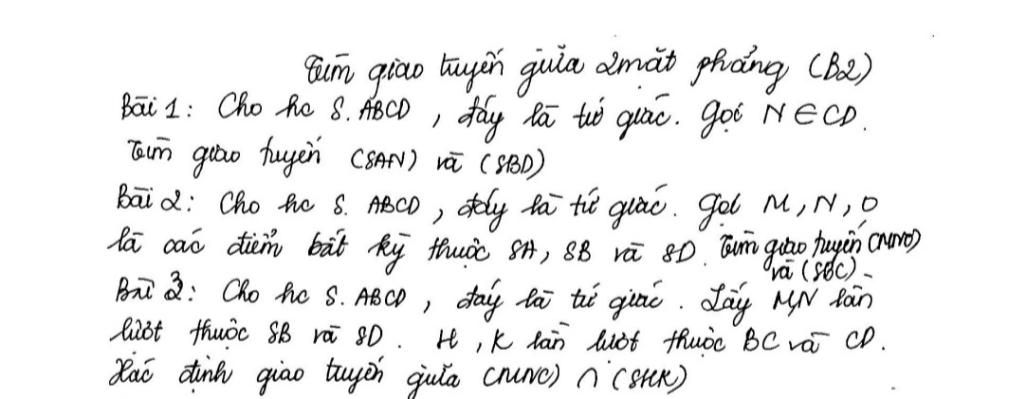 Tìm giao tuyến giữa 2 mặt phẳng (B2)
Bài 1: Cho hc S.ABCD, đáy là tứ giác. Gọi N ∈ CD.
Tìm giao tuyến (SAN) và (SBD)
Bài 2: Cho hc S.ABCD, đáy là tứ giác. Gọi M, N, O
là các điểm bất kỳ thuộc SA, SB và SD. Tìm giao tuyến (MNO)
và (SBC).
Bài 3: Cho hc S.ABCD, đáy là tứ giác. Lấy M,N lần
lượt thuộc SB và SD. H, K lần lượt thuộc BC và CD.
Xác định giao tuyến giữa (MNC) ∩ (SHK)